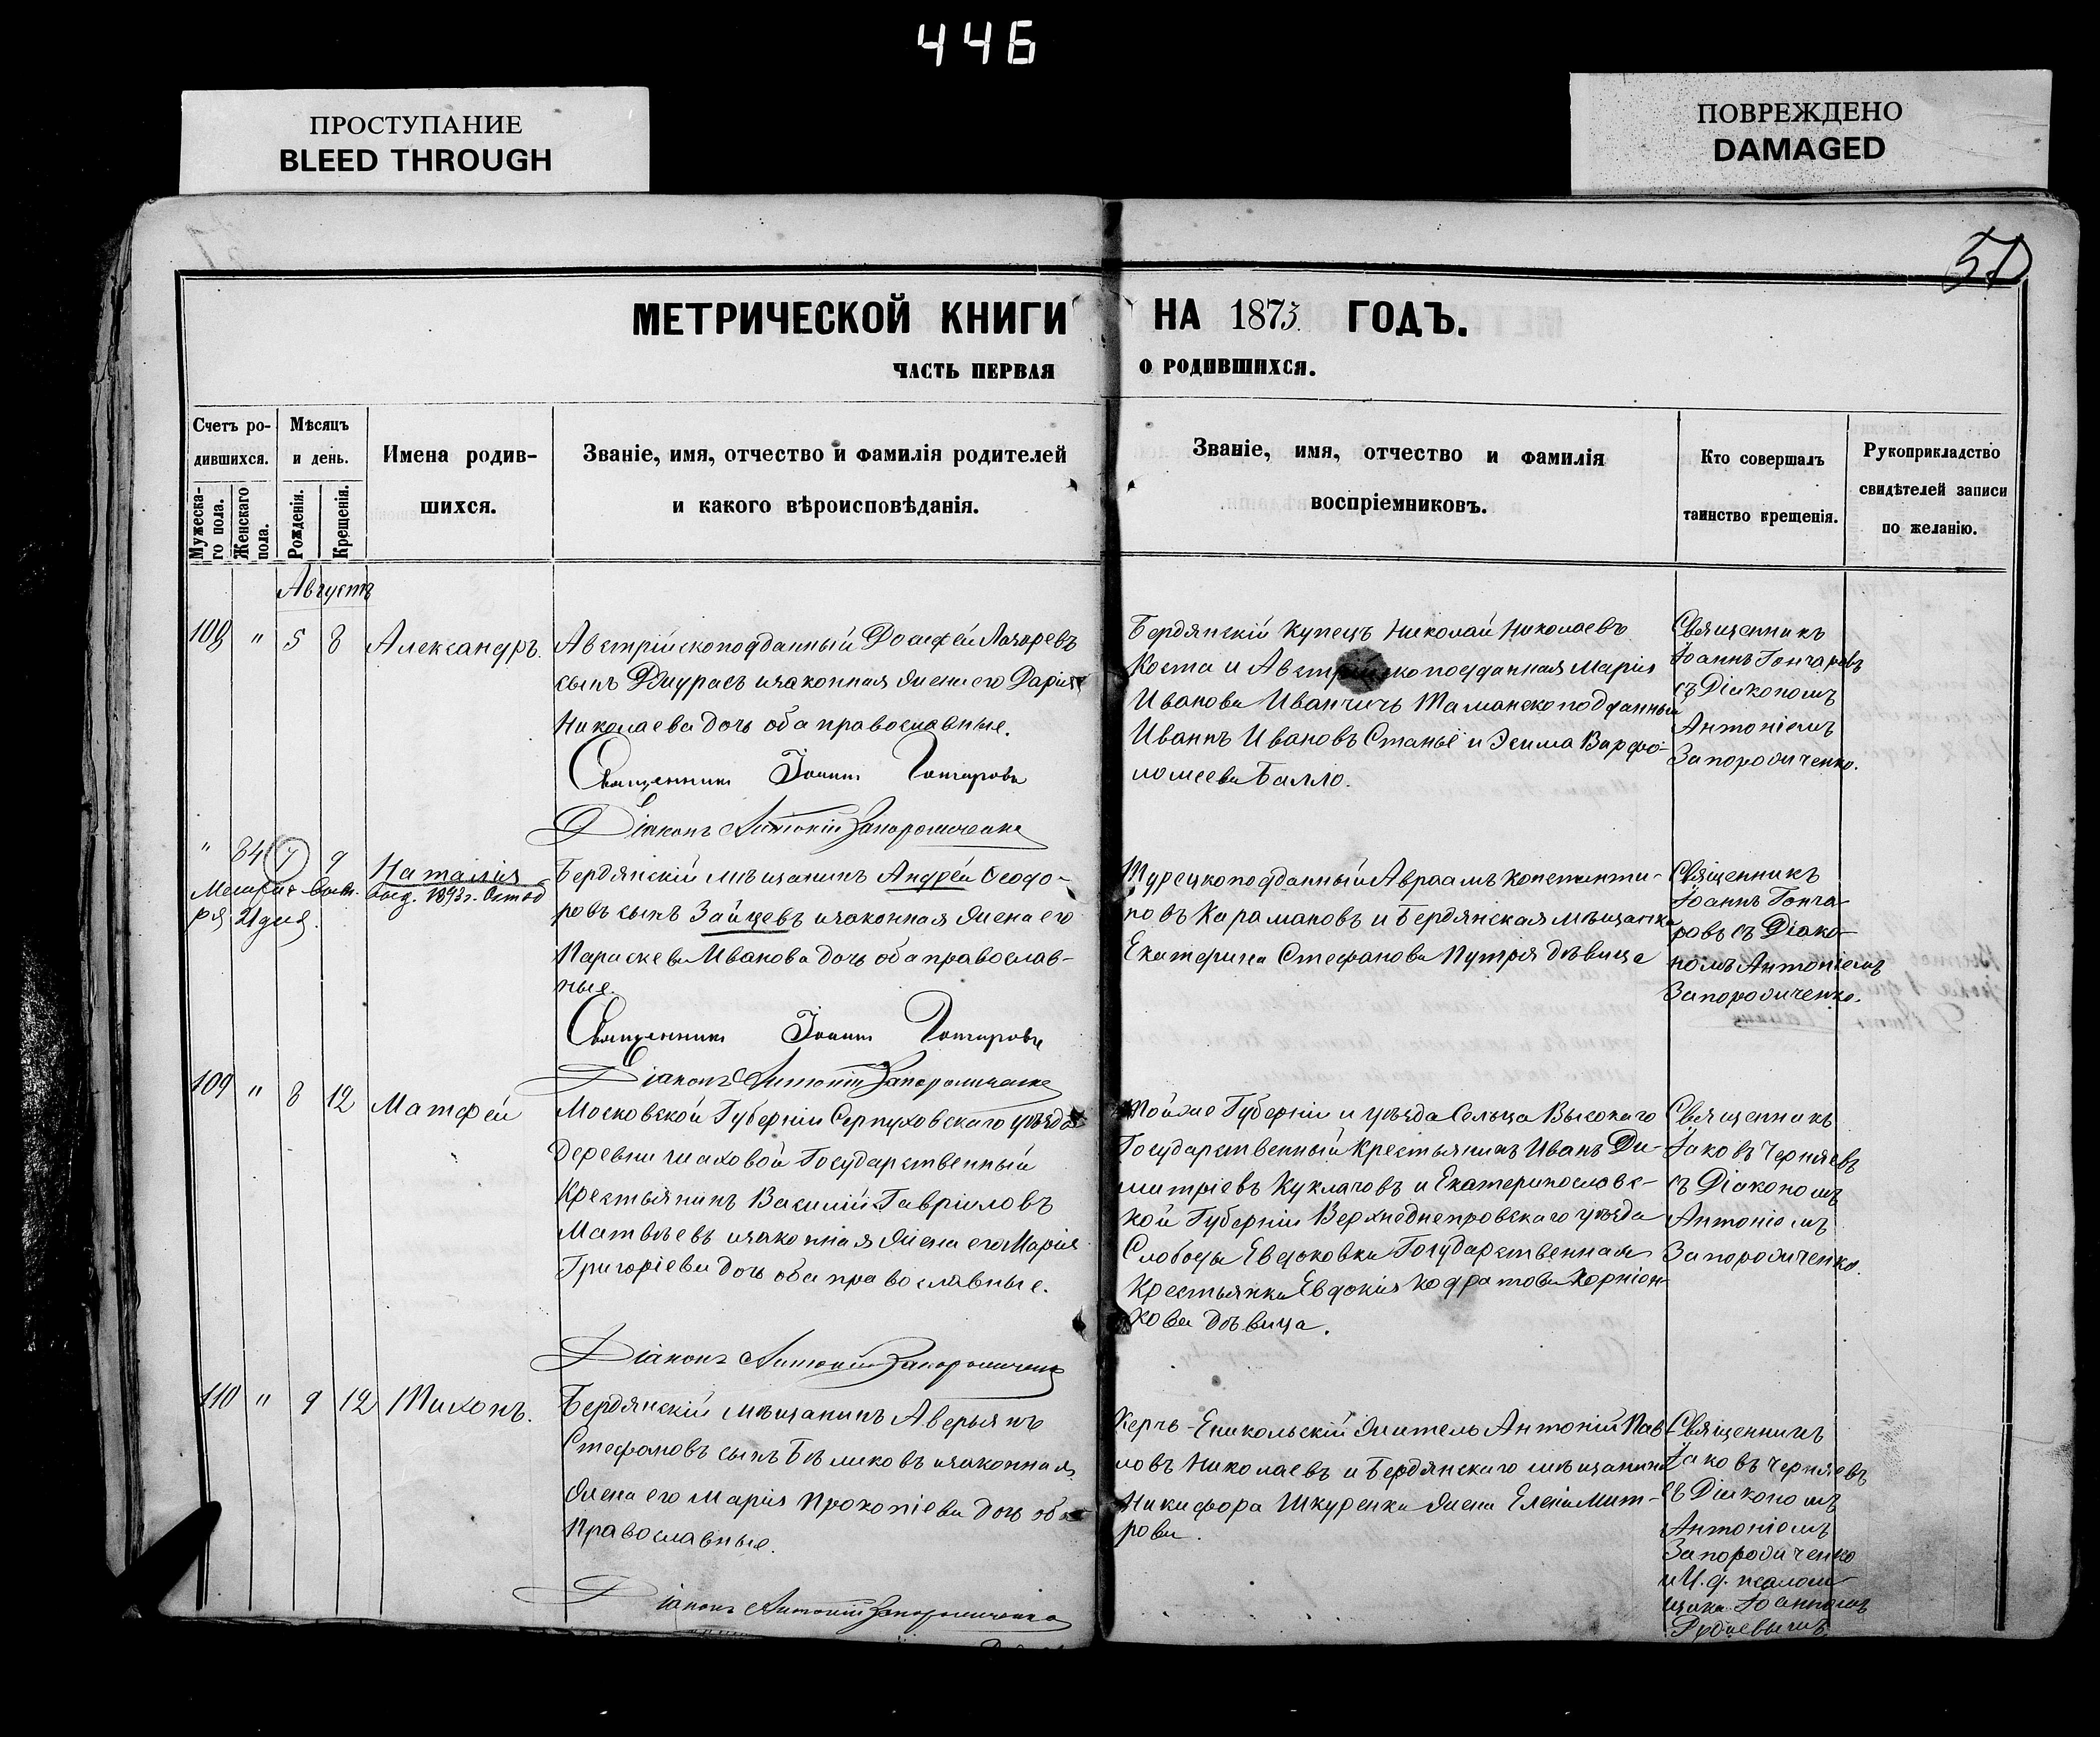 446
ПРОСТУПАНИЕ
BLEED THROUGH
ПОВРЕЖДЕНО
DAMAGED
51
МЕТРИЧЕСКОЙ КНИГИ НА 1873 ГОДЪ.
ЧАСТЬ ПЕРВАЯ О РОДИВШИХСЯ.
Счетъ ро-
дившихся.
Мужеска-
го пола.
Женскаго
пола.
Мѣсяцъ
и день.
Рожденія.
Крещенія.
Имена родив-
шихся.
Званіе, имя, отчество и фамилія родителей
и какого вѣроисповѣданія.
Званіе, имя, отчество и фамилія
воспріемниковъ.
Кто совершалъ
таинство крещенія.
Рукоприкладство
свидѣтелей записи
по желанію.
Августъ
108 " 5 8 Александръ.
Австрійскоподданный Досифей Лазаревъ
сынъ и законная жена его Дарія
Николаева дочь оба православные.
Священникъ Іоаннъ Гончаровъ
Діаконъ Антоній Запорожченко
Бердянскій Купецъ Николай Николаевъ
Коста и Австрійскоподданная Марія
Иванова Иванчичъ подданный
Иванъ Ивановъ и Варфо-
ломеева Балло.
Священникъ
Іоаннъ Гончаровъ
съ Діакономъ
Антоніемъ
Запорожченко.
" 84 7 9 Наталія
выд. 1893 г. Октяб
ря 21 дня.
Бердянскій мѣщанинъ Андрей Ѳеодо-
ровъ сынъ Зайцевъ и законная жена его
Параскева Иванова дочь оба православ-
ные.
Священникъ Іоаннъ Гончаровъ
Діаконъ Антоній Запорожченко
Турецкоподданный Авраамъ Константи-
новъ Карамановъ и Бердянская мѣщанка
Екатерина Стефанова Путря дѣвица
Священникъ
Іоаннъ Гонча-
ровъ съ Діако-
номъ Антоніемъ
Запорожченко.
109 " 8 12 Матфей
Московской Губерніи Серпуховскаго уѣзда
деревни Государственный
Крестьянинъ Василій Гавріиловъ
Матвѣевъ и законная жена его Марія
Григоріева дочь оба православные.
Діаконъ Антоній Запорожченко
Той же Губерніи и уѣзда Сельца Высокаго
Государственный Крестьянинъ Иванъ Ди-
митріевъ Куклачовъ и Екатеринославс-
кой Губерніи Верхнеднепровскаго уѣзда
Слободы Евдоковки Государственная
Крестьянка Евдокія Кодратова Корніен-
кова дѣвица.
Священникъ
Іаковъ Черняевъ
съ Діакономъ
Антоніемъ
Запорожченко.
110 " 9 12 Тихонъ.
Бердянскій мѣщанинъ Аверьянъ
Стефановъ сынъ Бѣликовъ и законная
жена его Марія Прокопіева дочь оба
Православные.
Діаконъ Антоній Запорожченко
Керчь-Еникольскій житель Антоній Пав-
ловъ Николаевъ и Бердянскаго мѣщанина
Никифора Шкуренка жена Елена Мит-
рова.
Священникъ
Іаковъ Черняевъ
съ Діакономъ
Антоніемъ
Запорожченко
и И. д. псалом-
щика Іоанномъ